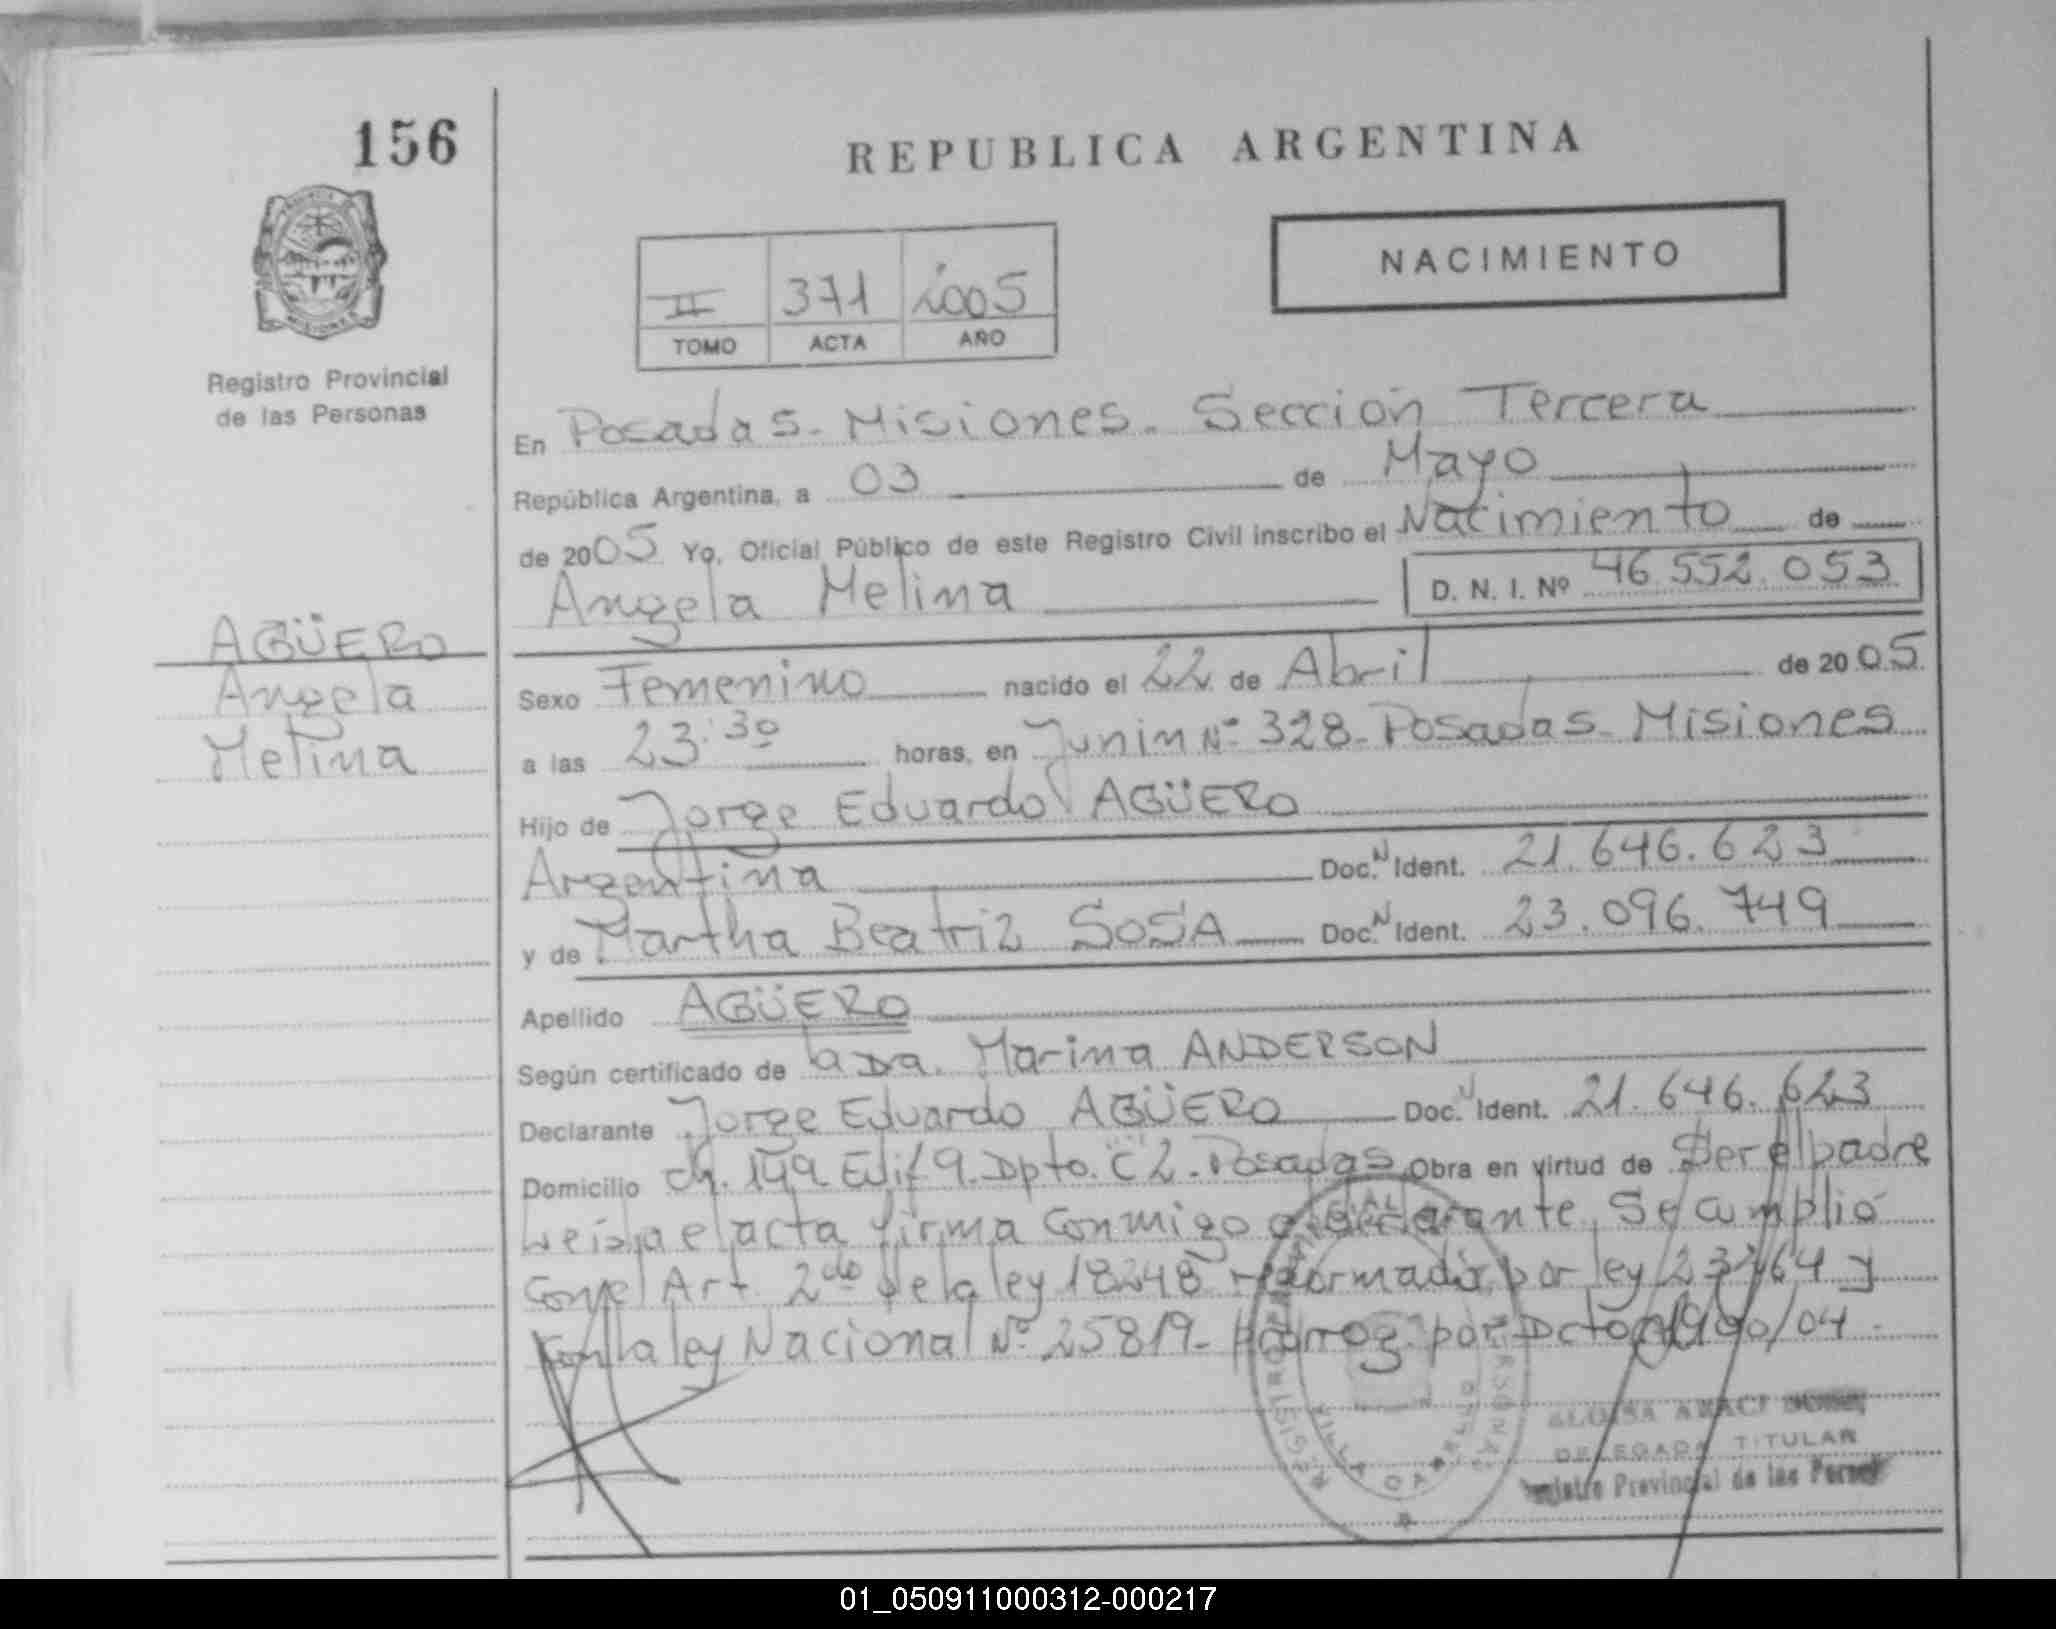 156
REPUBLICA ARGENTINA
NACIMIENTO
II 371 2005
TOMO ACTA AÑO
MISIONES
Registro Provincial
de las Personas
En Posadas - Misiones. Sección Tercera
República Argentina, a 03 de Mayo
de 2005 Yo, Oficial Público de este Registro Civil inscribo el Nacimiento de
Angela Melina D. N. I. Nº 46.552.053
AGÜERO
Angela
Melina
Sexo Femenino nacido el 22 de Abril de 2005
a las 23:30 horas, en Junin Nº 328 - Posadas - Misiones
Hijo de Jorge Eduardo AGÜERO
Argentina Doc. N Ident. 21.646.623
y de Martha Beatriz SOSA Doc. N Ident. 23.096.749
Apellido AGÜERO
Según certificado de la Da. Marina ANDERSON
Declarante Jorge Eduardo AGÜERO Doc. N Ident. 21.646.623
Domicilio Ch. 149 Edif 9. Dpto. C 2. Posadas Obra en virtud de Ser el padre
Leída el acta firma Conmigo el declarante, Se cumplió
Con el Art. 2do de la ley 18248 reformada por ley 23264 y
Con la ley Nacional Nº 25819 - prorrog. por Dcto
DELEGADA TITULAR
Registro Provincial de las
VILLA CABELLO
01_050911000312-000217